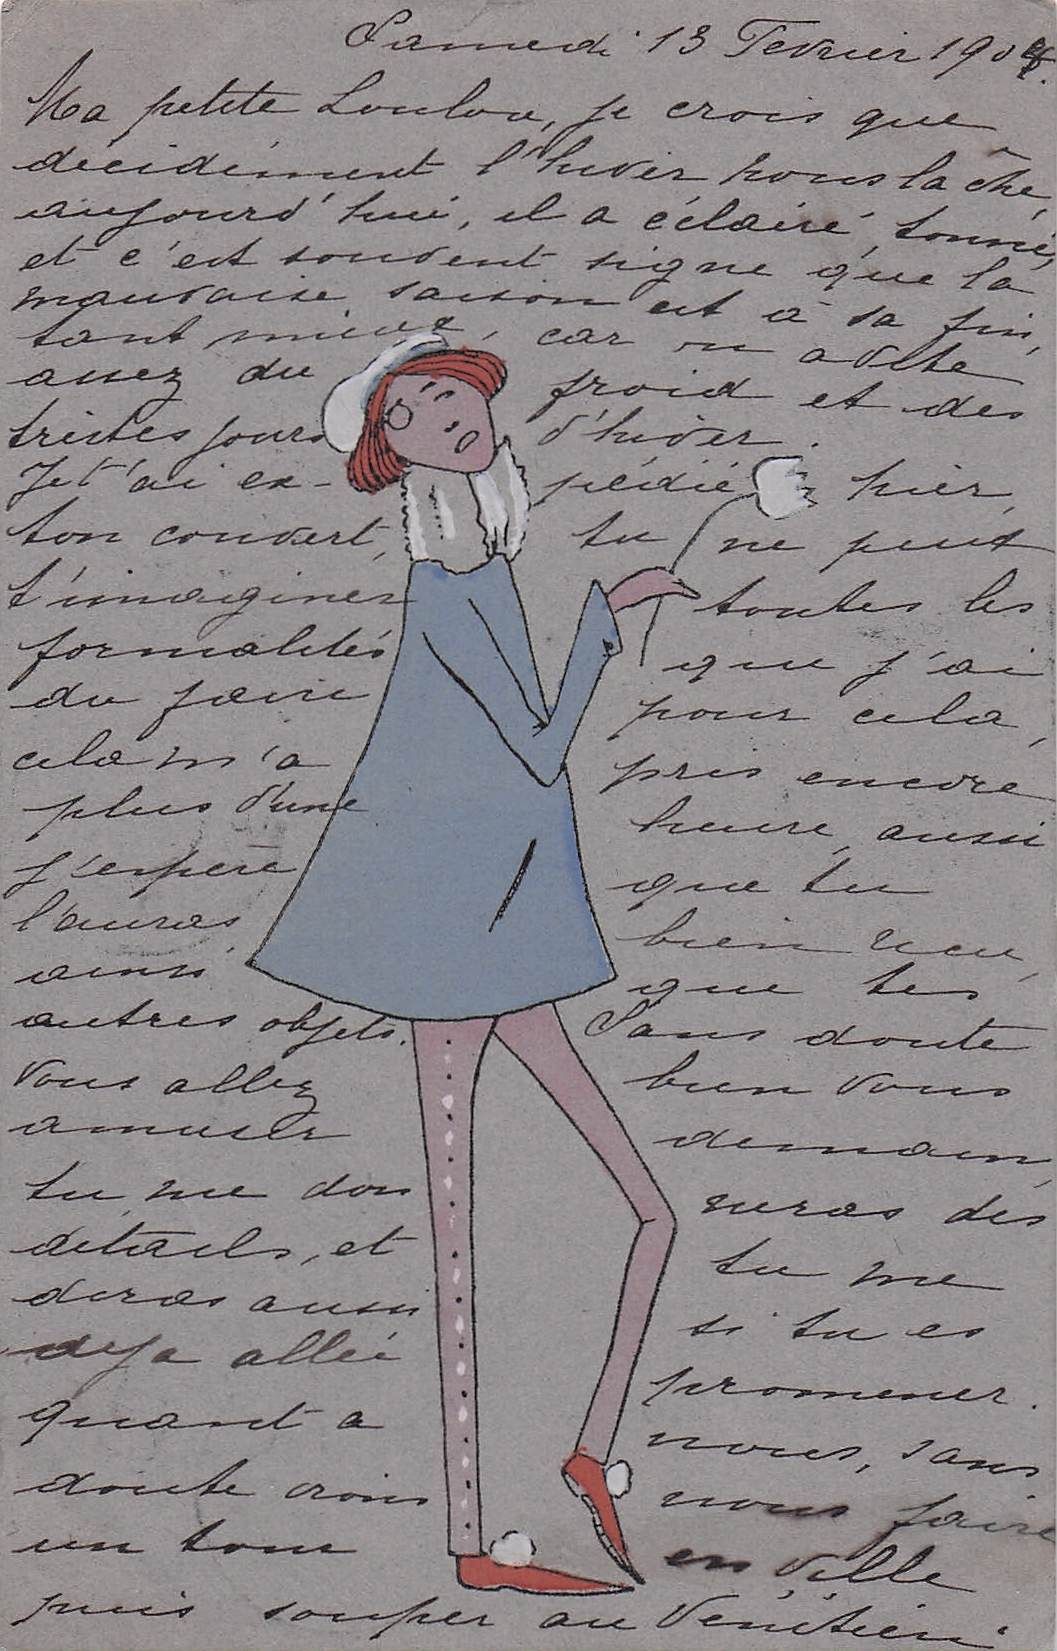 Samedi 13 Fevrier 1904.
Ma petite Loulou, je crois que
décidément l'hiver nous lache,
aujourd'hui, il a éclairé, tonné,
et c'est souvent signe que la
mauvaise saison est à sa fin,
tant mieux, car on a
assez du froid et des
tristes jours d'hiver.
Je t'ai expédié hier,
ton couvert, tu ne peux
t'imaginer toutes les
formalités que j'ai
du faire pour cela,
cela m'a pris encore
plus d'une heure, aussi
j'espere que tu
l'auras bien recu,
ainsi que tes
autres objets. Sans doute
vous allez bien vous
amuser demain,
tu me donneras des
détails, et tu me
diras aussi si tu es
deja allée promener.
quant a nous, sans
doute irons nous faire
un tour en ville
puis souper au Vénitien.